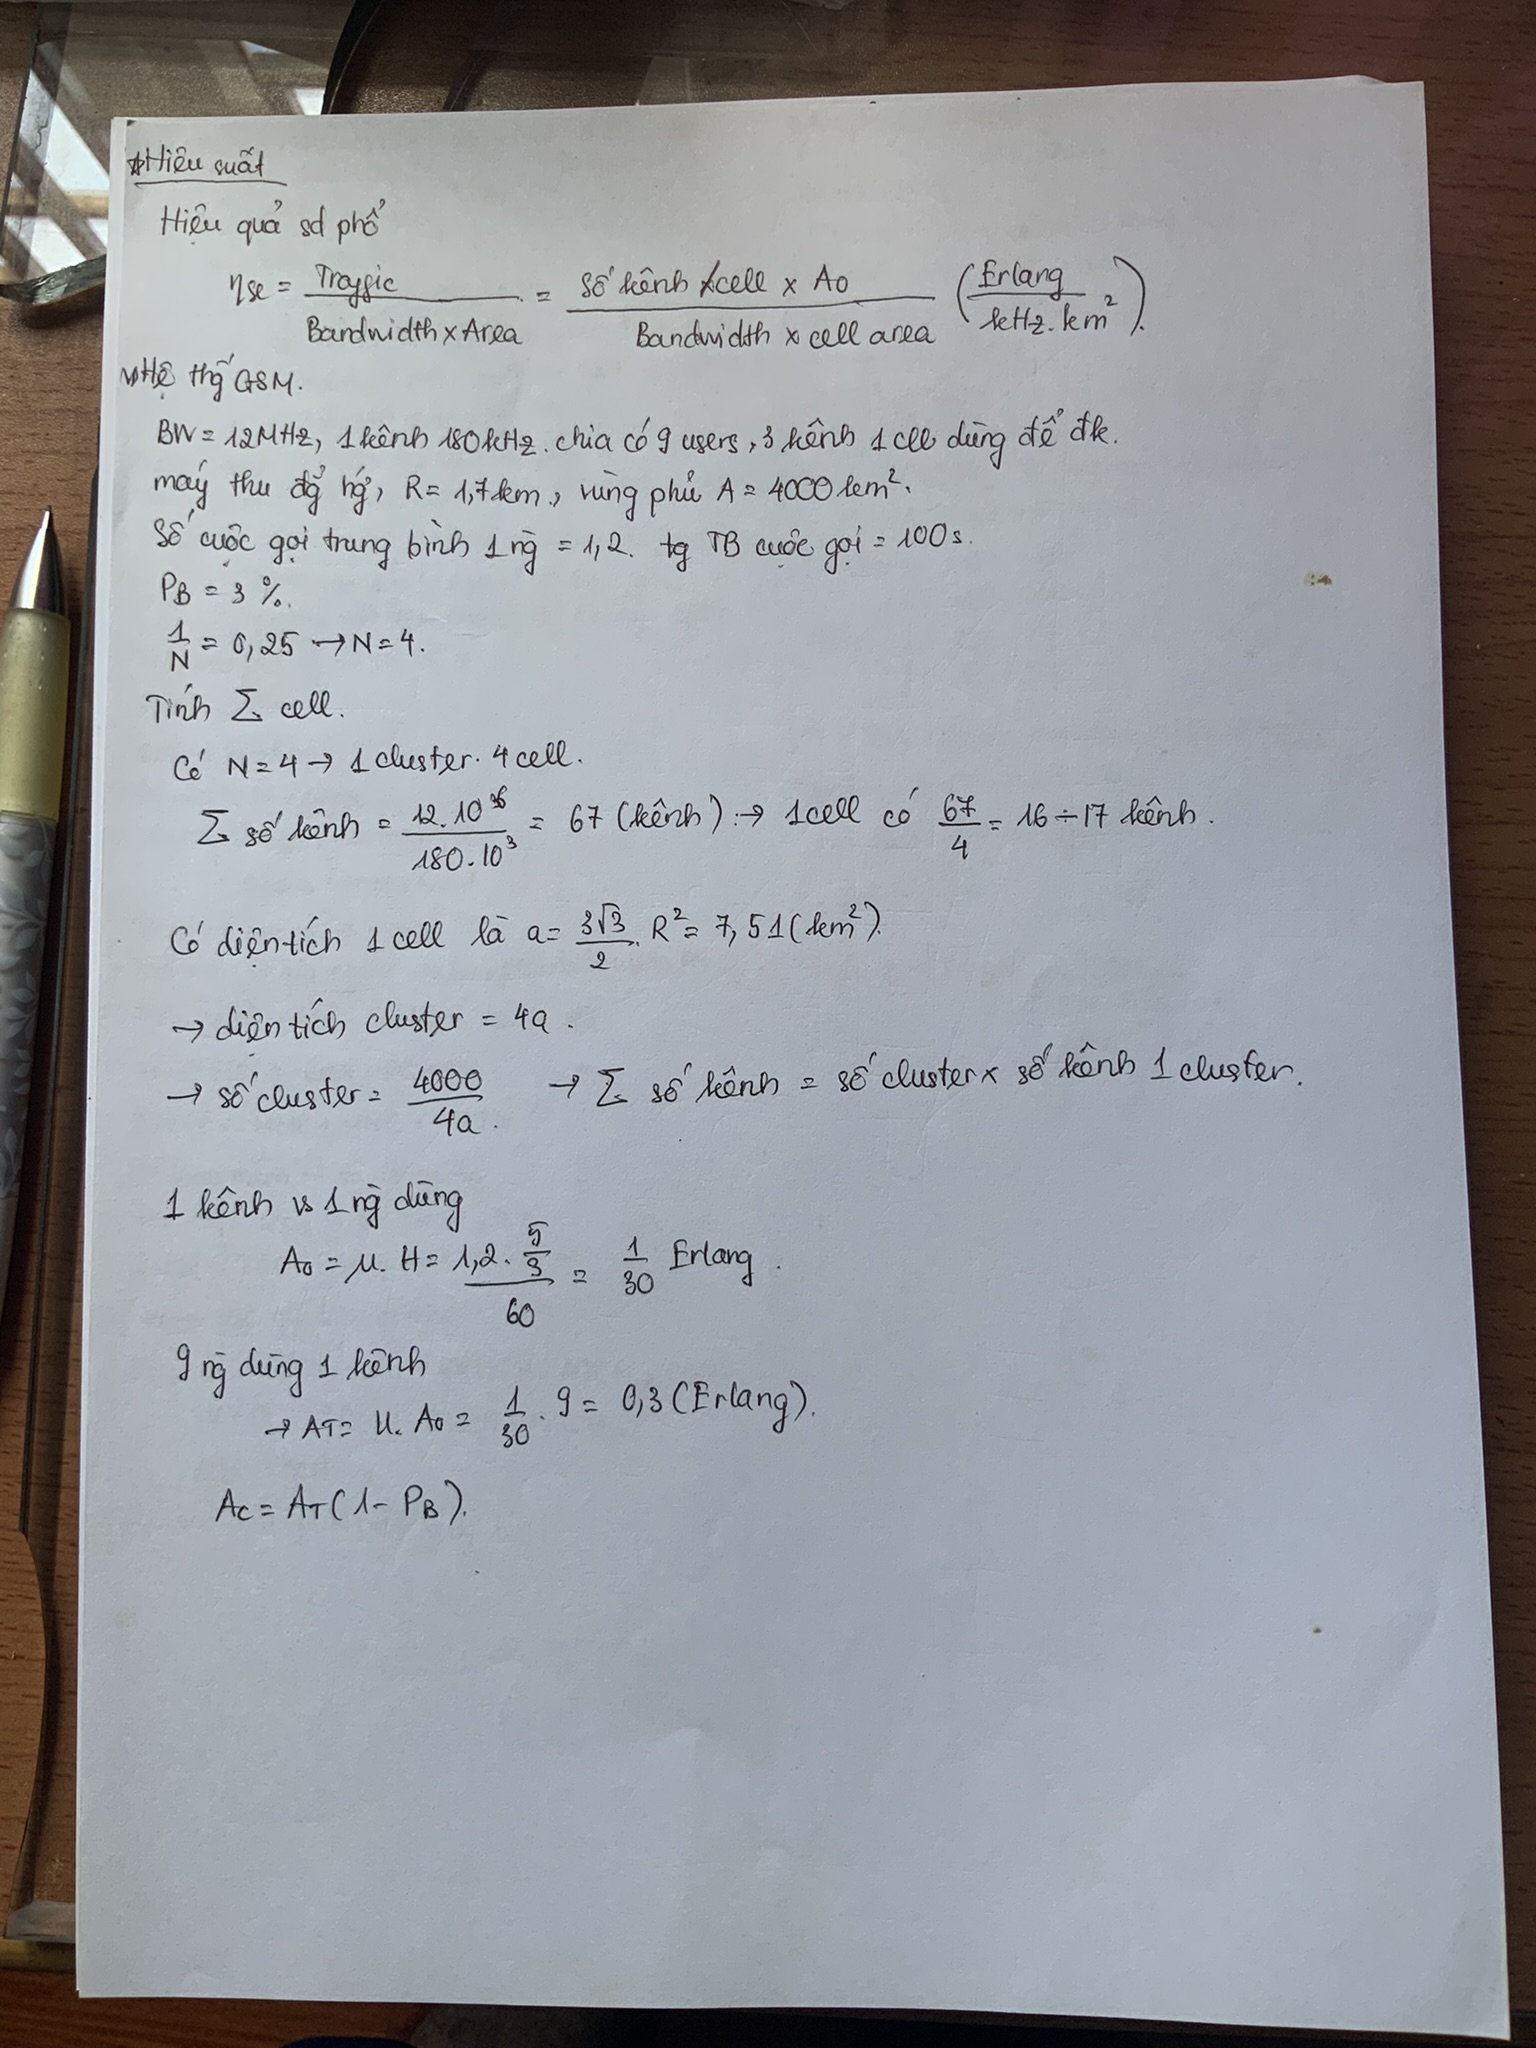 *Hiệu suất
Hiệu quả sd phổ
ηse = Traffic / Bandwidth x Area = Số kênh /cell x Ao / Bandwidth x cell area (Erlang / kHz.km²).
Hệ thg GSM.
BW = 12MHz, 1 kênh 180kHz. chia có 9 users, 3 kênh 1 cell dùng để đk.
máy thu đẳng hg, R = 1,7km, vùng phủ A = 4000 km².
Số cuộc gọi trung bình 1 ng = 1,2. tg TB cuộc gọi = 100s.
PB = 3 %.
1/N = 0,25 → N = 4.
Tính Σ cell.
Có N = 4 → 1 cluster. 4 cell.
Σ số kênh = 12.10⁶ / 180.10³ = 67 (kênh) → 1 cell có 67/4 = 16 ÷ 17 kênh.
Có diện tích 1 cell là a = 3√3/2 . R² = 7,51 (km²).
→ diện tích cluster = 4a.
→ số cluster = 4000/4a. → Σ số kênh = số cluster x số kênh 1 cluster.
1 kênh vs 1 ng dùng
Ao = μ. H = 1,2. 5/3 / 60 = 1/30 Erlang.
9 ng dùng 1 kênh
→ AT = U. Ao = 1/30 . 9 = 0,3 (Erlang).
Ac = AT (1 - PB).